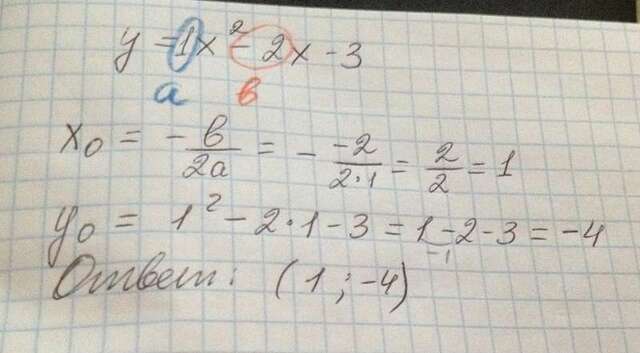 y = 1x² - 2x - 3
a в
x₀ = - в/2a = - -2/2·1 = 2/2 = 1
y₀ = 1² - 2·1 - 3 = 1 - 2 - 3 = -4
-1
Ответ: (1 ; -4)